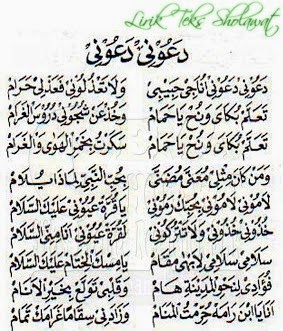 Lirik Teks Sholawat
دَعُوْنِيْ دَعُوْنِيْ
دَعُوْنِيْ دَعُوْنِيْ أُنَاجِيْ حَبِيْبِيْ وَلَا تَعْذُلُوْنِيْ فَعَذْلِيْ حَرَامْ
تَعَلَّمْ بُكَايَ وَنُحْ يَا حَمَامْ وَخُذْ عَنْ شُجُوْنِيْ دُرُوْسَ الْغَرَامْ
تَعَلَّمْ بُكَايَ وَنُحْ يَا حَمَامْ سَكَرْتُ بِخَمْرِ الْهَوٰى وَالْغَرَامْ
وَمَنْ كَانَ مِثْلِيْ مُعَنًّى بِحُبِّ النَّبِيْ لِمَاذَا يُلَامْ
لَامُوْنِيْ لَامُوْنِيْ بِحُبِّكَ رَمُوْنِيْ يَا قُرَّةَ عُيُوْنِيْ عَلَيْكَ السَّلَامْ
خُذُوْنِيْ خُذُوْنِيْ لِقُرَّةِ عُيُوْنِيْ السَّلَامْ
سَلَامِيْ سَلَامِيْ مَقَامْ يَا مِسْكَ الْخِتَامْ عَلَيْكَ السَّلَامْ
فُؤَادِيْ لِنَحْوِ الْمَدِيْنَةِ هَامْ وَقَلْبِيْ تَوَلَّعْ بِخَيْرِ الْأَنَامْ
أَنَا يَا ابْنَ رَامَةَ حُرِمْتُ الْمَنَامْ وَزَادَنِيْ سِقَامًا غَرَامُكْ تَمَامْ